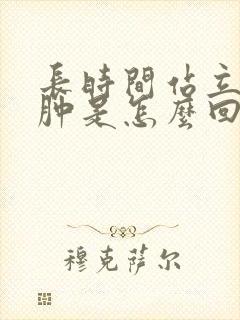 長時間佔立
肿是怎麼回
穆克萨尔